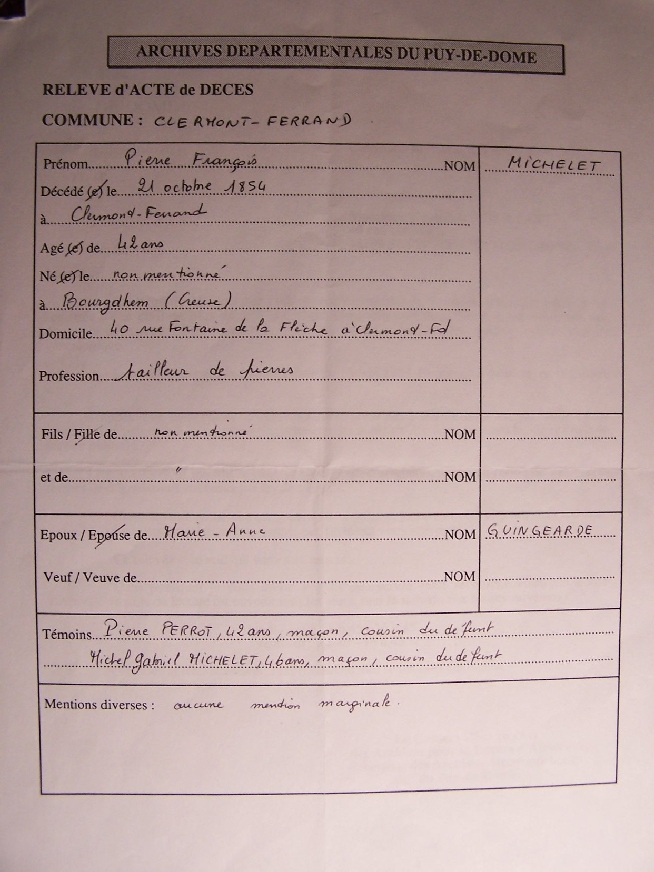 ARCHIVES DEPARTEMENTALES DU PUY-DE-DOME
RELEVE d'ACTE de DECES
COMMUNE : CLERMONT-FERRAND
Prénom Pierre François NOM MICHELET
Décédé (e) le 21 octobre 1854
à Clermond-Ferrand
Agé (e) de 42 ans
Né (e) le non mentionné
à Bourgdhem (Creuse)
Domicile 40 rue Fontaine de la Flèche à Clermond-Fd
Profession tailleur de pierres
Fils / Fille de non mentionné NOM
et de " NOM
Epoux / Epouse de Marie-Anne NOM GUINGEARDE
Veuf / Veuve de NOM
Témoins Pierre PERROT, 42 ans, maçon, cousin du défunt
Michel Gabriel MICHELET, 46 ans, maçon, cousin du défunt
Mentions diverses : aucune mention marginale.